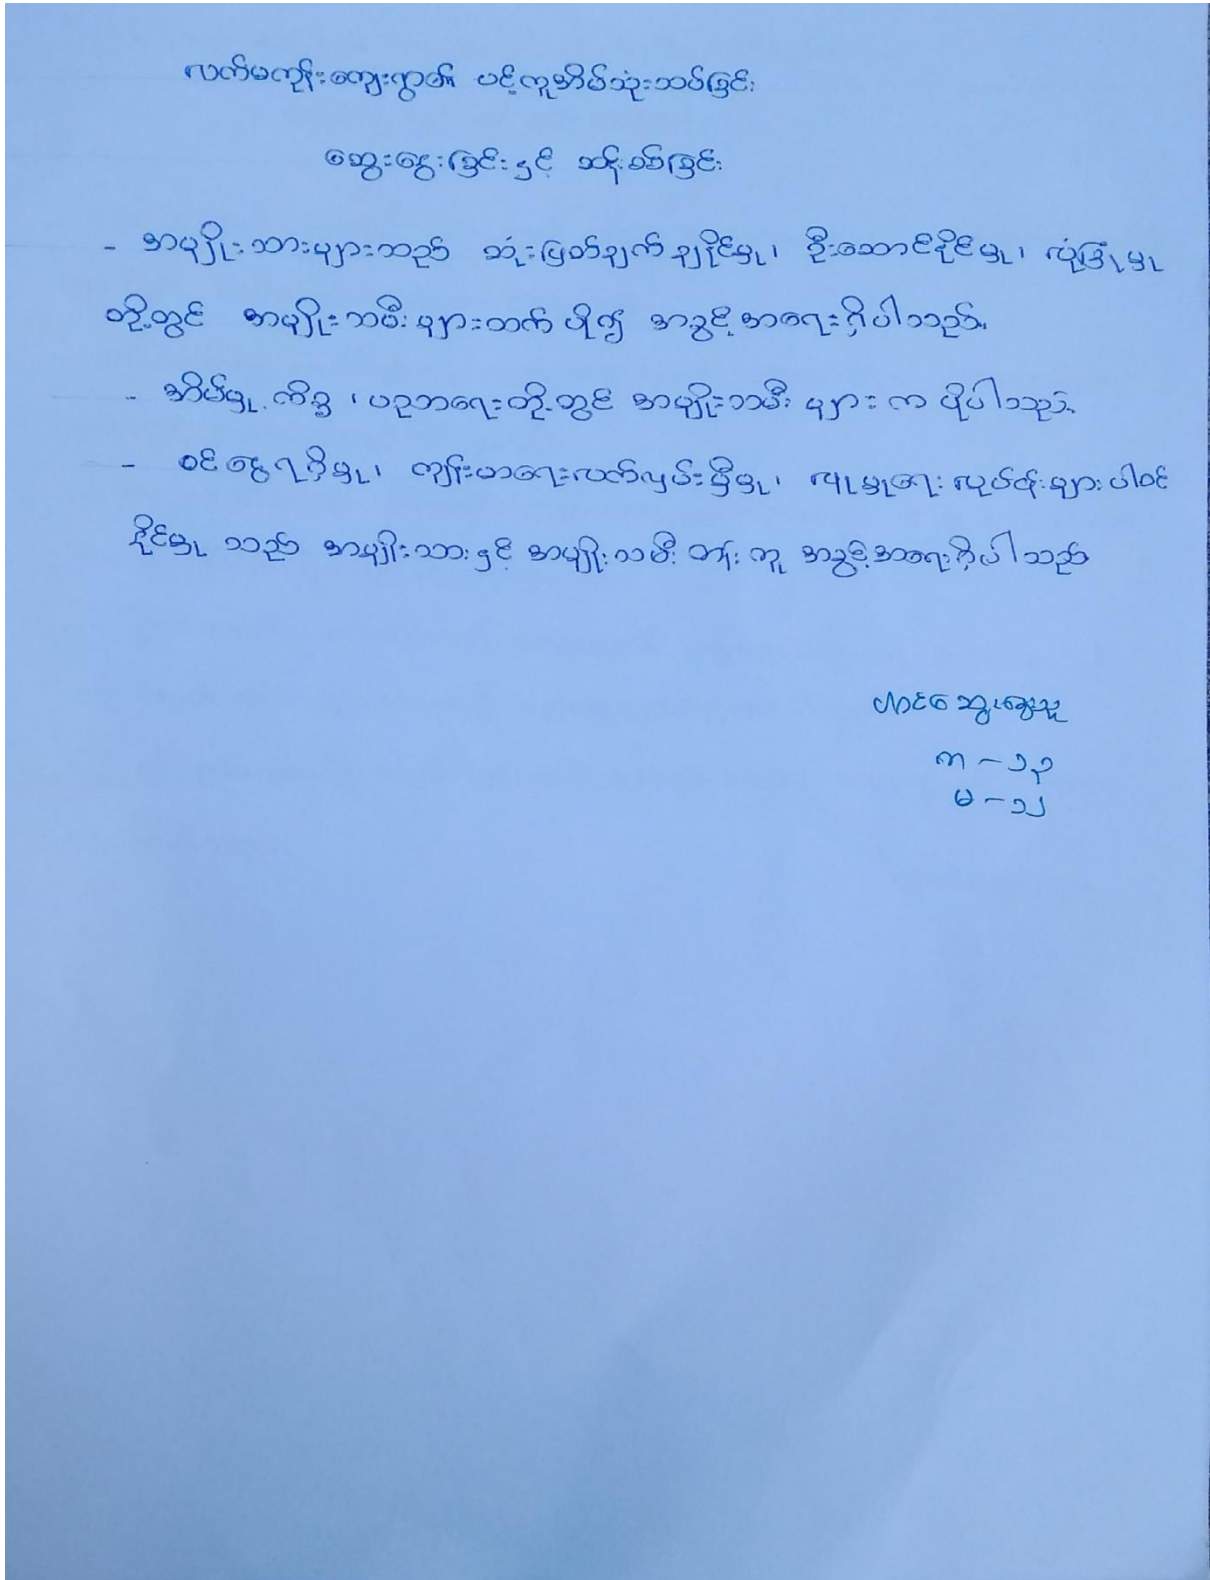 လက်မကုန်းကျေးရွာ၏ ပင့်ကူအိမ်သုံးသပ်ခြင်း
ဆွေးနွေးခြင်းနှင့် ဆန်းစစ်ခြင်း
- အမျိုးသားများသည် ဆုံးဖြတ်ချက်ချနိုင်မှု၊ ဦးဆောင်နိုင်မှု၊ လုံခြုံမှု
တို့တွင် အမျိုးသမီးများထက် ပို၍ အခွင့်အရေးရှိပါသည်။
- အိမ်မှုကိစ္စ၊ ပညာရေးတို့တွင် အမျိုးသမီးများက ပိုပါသည်။
- ဝင်ငွေရရှိမှု၊ ကျန်းမာရေးလက်လှမ်းမှီမှု၊ လူမှုရေးလုပ်ငန်းများပါဝင်
နိုင်မှုသည် အမျိုးသားနှင့် အမျိုးသမီး တန်းတူ အခွင့်အရေးရှိပါသည်
ပါဝင်ဆွေးနွေးသူ
ကျား - ၁၃
မ - ၁၂